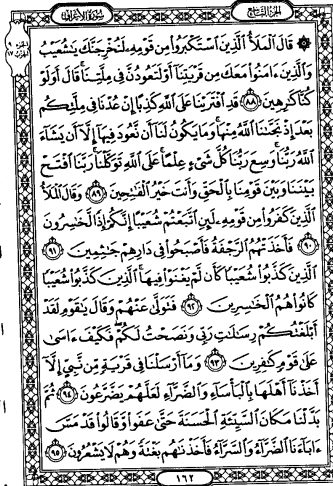 سورة الأعراف
الجزء التاسع
۞ قَالَ ٱلْمَلَأُ ٱلَّذِينَ ٱسْتَكْبَرُوا۟ مِن قَوْمِهِۦ لَنُخْرِجَنَّكَ يَٰشُعَيْبُ
وَٱلَّذِينَ ءَامَنُوا۟ مَعَكَ مِن قَرْيَتِنَآ أَوْ لَتَعُودُنَّ فِى مِلَّتِنَا قَالَ أَوَلَوْ
كُنَّا كَٰرِهِينَ ٨٨ قَدِ ٱفْتَرَيْنَا عَلَى ٱللَّهِ كَذِبًا إِنْ عُدْنَا فِى مِلَّتِكُم
بَعْدَ إِذْ نَجَّىٰنَا ٱللَّهُ مِنْهَا وَمَا يَكُونُ لَنَآ أَن نَّعُودَ فِيهَآ إِلَّآ أَن يَشَآءَ
ٱللَّهُ رَبُّنَا وَسِعَ رَبُّنَا كُلَّ شَىْءٍ عِلْمًا عَلَى ٱللَّهِ تَوَكَّلْنَا رَبَّنَا ٱفْتَحْ
بَيْنَنَا وَبَيْنَ قَوْمِنَا بِٱلْحَقِّ وَأَنتَ خَيْرُ ٱلْفَٰتِحِينَ ٨٩ وَقَالَ ٱلْمَلَأُ
ٱلَّذِينَ كَفَرُوا۟ مِن قَوْمِهِۦ لَئِنِ ٱتَّبَعْتُمْ شُعَيْبًا إِنَّكُمْ إِذًا لَّخَٰسِرُونَ
٩٠ فَأَخَذَتْهُمُ ٱلرَّجْفَةُ فَأَصْبَحُوا۟ فِى دَارِهِمْ جَٰثِمِينَ ٩١
ٱلَّذِينَ كَذَّبُوا۟ شُعَيْبًا كَأَن لَّمْ يَغْنَوْا۟ فِيهَا ٱلَّذِينَ كَذَّبُوا۟ شُعَيْبًا
كَانُوا۟ هُمُ ٱلْخَٰسِرِينَ ٩٢ فَتَوَلَّىٰ عَنْهُمْ وَقَالَ يَٰقَوْمِ لَقَدْ
أَبْلَغْتُكُمْ رِسَٰلَٰتِ رَبِّى وَنَصَحْتُ لَكُمْ فَكَيْفَ ءَاسَىٰ
عَلَىٰ قَوْمٍ كَٰفِرِينَ ٩٣ وَمَآ أَرْسَلْنَا فِى قَرْيَةٍ مِّن نَّبِىٍّ إِلَّآ
أَخَذْنَآ أَهْلَهَا بِٱلْبَأْسَآءِ وَٱلضَّرَّآءِ لَعَلَّهُمْ يَضَّرَّعُونَ ٩٤ ثُمَّ
بَدَّلْنَا مَكَانَ ٱلسَّيِّئَةِ ٱلْحَسَنَةَ حَتَّىٰ عَفَوا۟ وَّقَالُوا۟ قَدْ مَسَّ
ءَابَآءَنَا ٱلضَّرَّآءُ وَٱلسَّرَّآءُ فَأَخَذْنَٰهُم بَغْتَةً وَهُمْ لَا يَشْعُرُونَ ٩٥
١٦٢